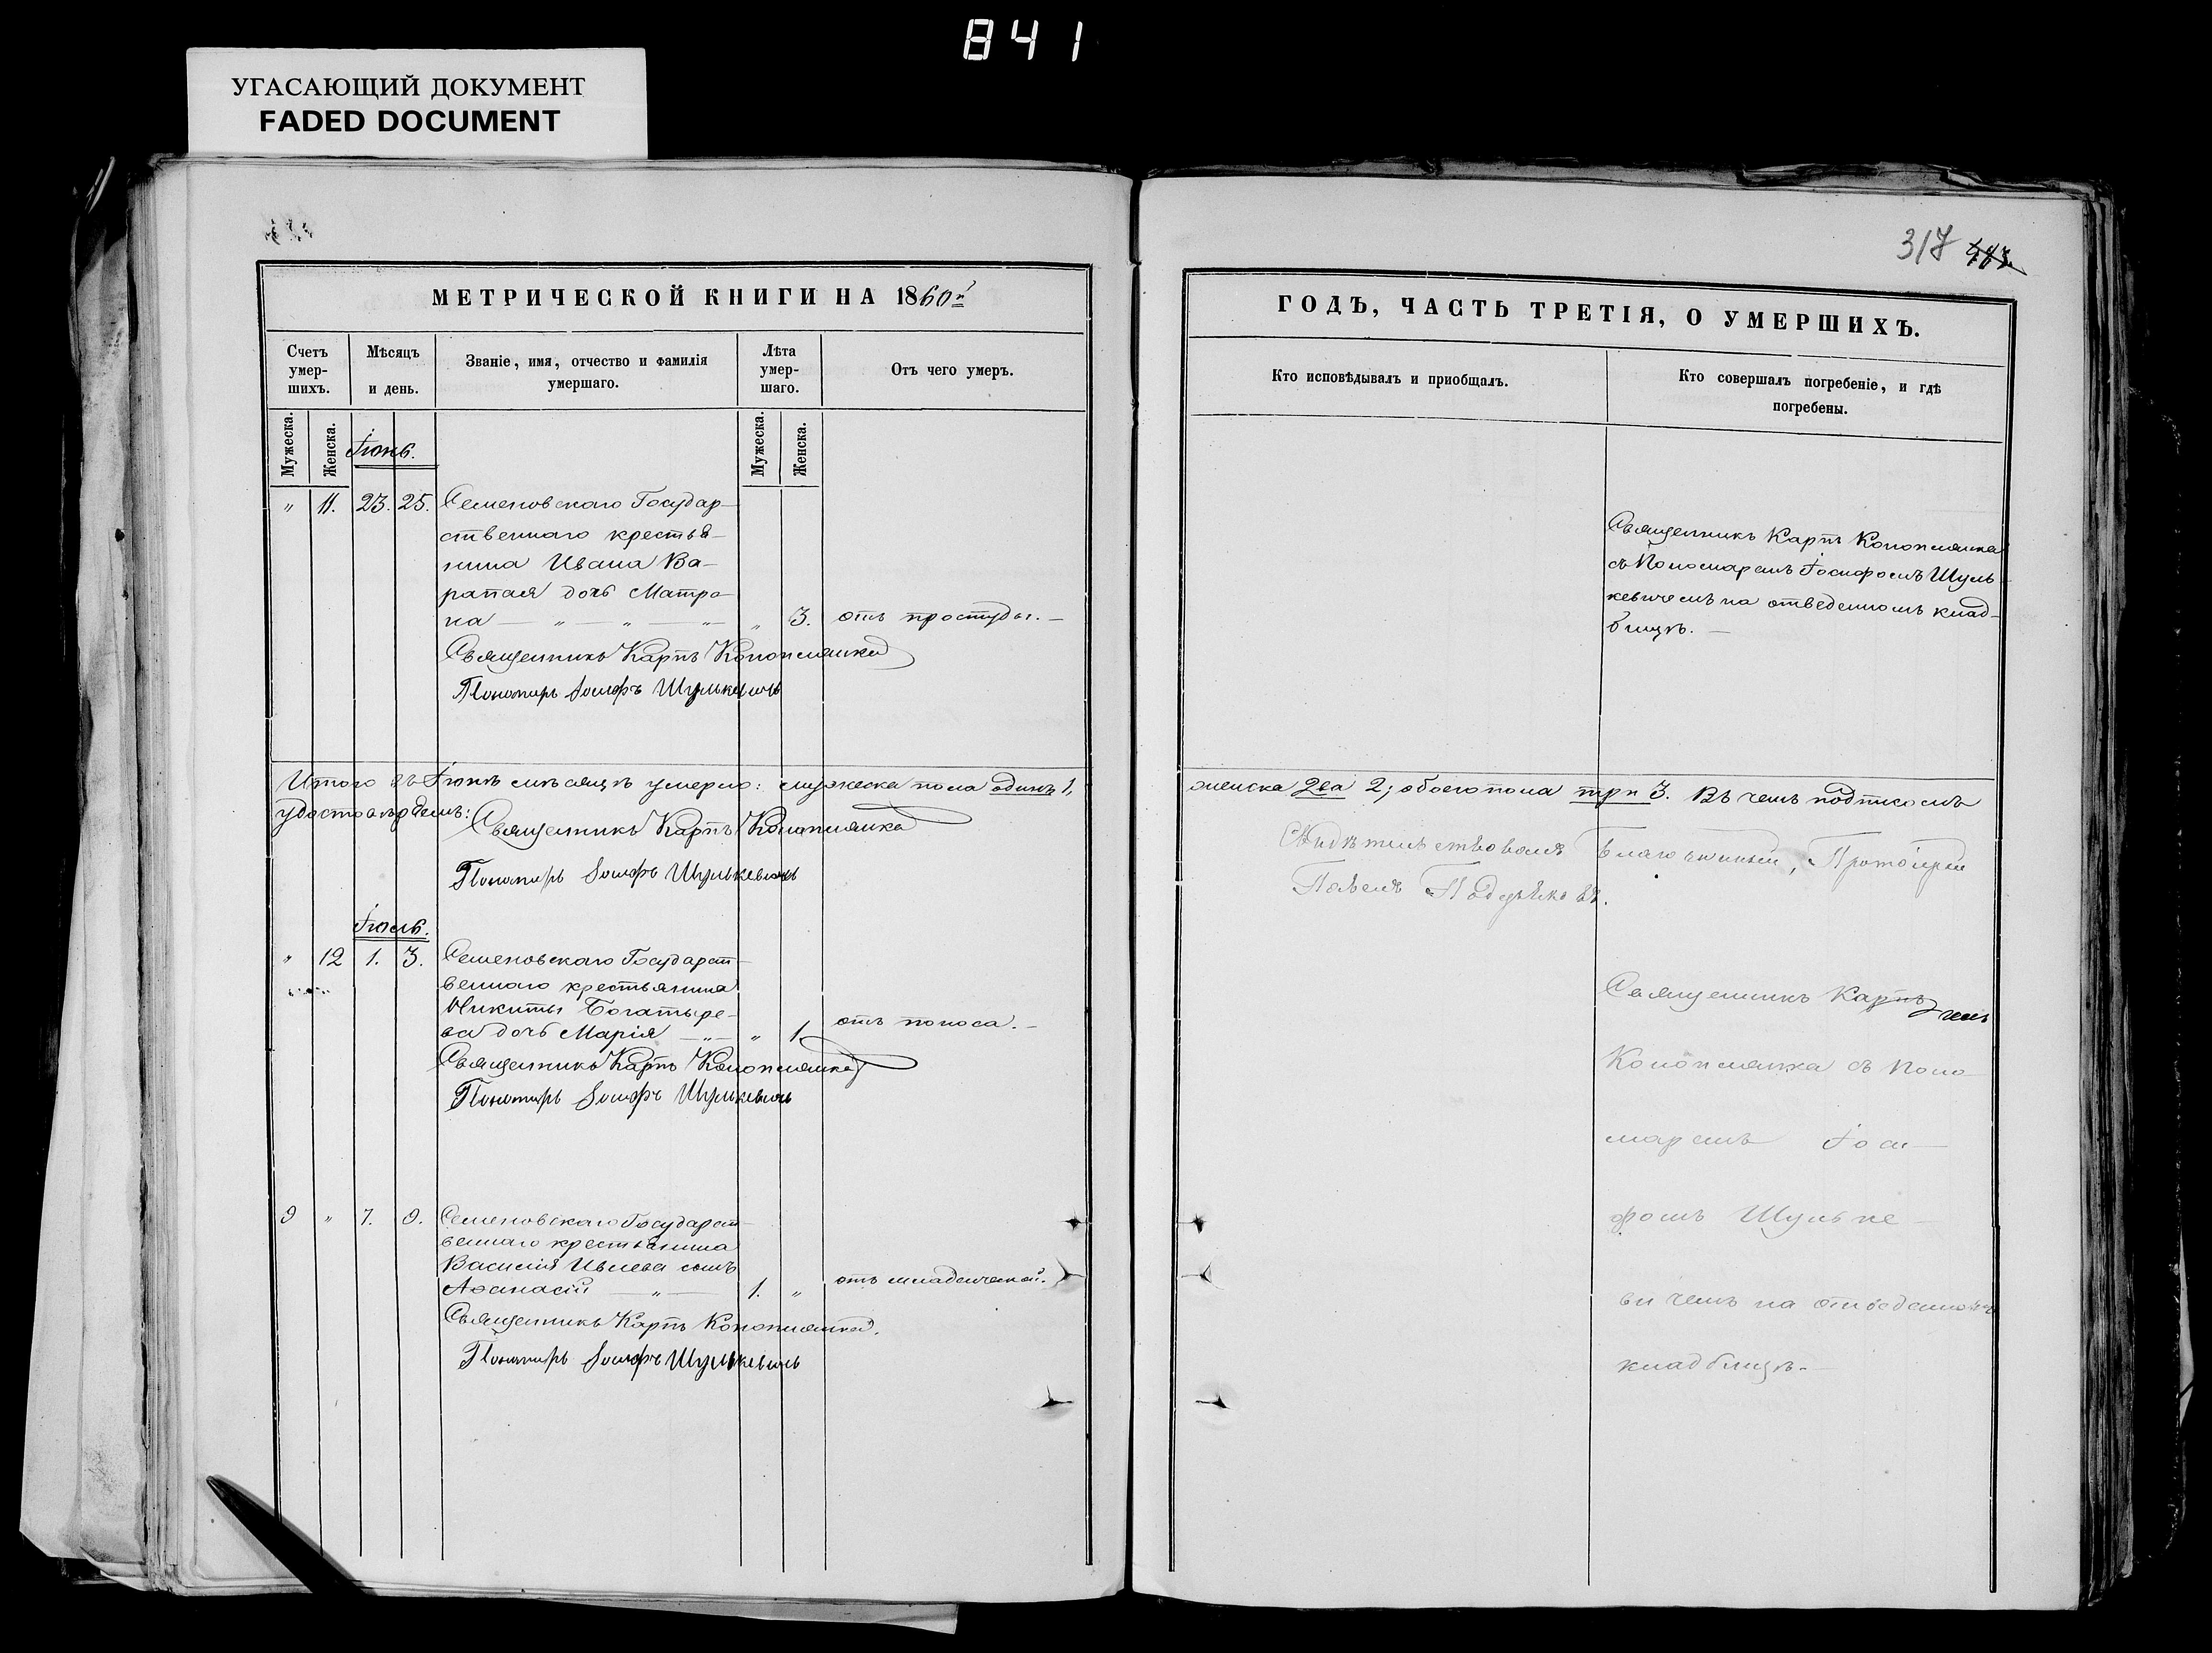 841
УГАСАЮЩИЙ ДОКУМЕНТ
FADED DOCUMENT
МЕТРИЧЕСКОЙ КНИГИ НА 1860й
Счетъ умер-шихъ.
Мѣсяцъ и день.
Званіе, имя, отчество и фамилія умершаго.
Лѣта умер-шаго.
Отъ чего умеръ.
Мужеска.
Женска.
Мужеска.
Женска.
Іюнь.
" 11. 23. 25. Семеновскаго Государ-
ственнаго крестья-
нина Ивана Ва-
рапая дочь Матро-
на — " — " — " — " 3. отъ простуды. —
Священникъ Карпъ Конопляника
Пономарь Іосифъ Шулькевичь
Итого въ Іюнѣ мѣсяцѣ умерло: мужеска пола одинъ 1,
удостовѣряемъ:
Священникъ Карпъ Конопляника
Пономарь Іосифъ Шулькевичь
Іюль.
" 12 1. 3. Семеновскаго Государст-
веннаго крестьянина
Никиты Богатыре-
ва дочь Марія — " — " 1. отъ поноса. —
Священникъ Карпъ Конопляника
Пономарь Іосифъ Шулькевичь
9 " 7. 9. Семеновскаго Государст-
веннаго крестьянина
Василія Ивлева сынъ
Аѳанасій — " — 1. " отъ младенческой.
Священникъ Карпъ Конопляника.
Пономарь Іосифъ Шулькевичь
317
ГОДЪ, ЧАСТЬ ТРЕТІЯ, О УМЕРШИХЪ.
Кто исповѣдывалъ и приобщалъ.
Кто совершалъ погребеніе, и гдѣ погребены.
Священникъ Карпъ Конопляника
съ Пономаремъ Іосифомъ Шуль-
кевичемъ на отведенномъ клад-
бищѣ. —
женска два 2; обоего пола три 3. Въ чемъ подписомъ
Свидѣтельствовалъ Благочинный, Протоіерей
Павелъ
Священникъ Карпъ
Конопляника съ Поно-
маремъ Іоси-
фомъ Шульке-
вичемъ на отведенномъ
кладбищѣ. —